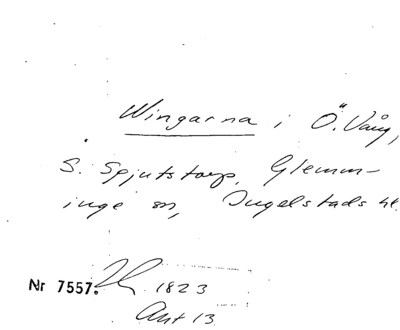 Wingarna i Ö. Vång,
S. Spjutstorp, Glemm-
inge sn, Ingelstads hd.
Nr 7557. 1823
Akt 13